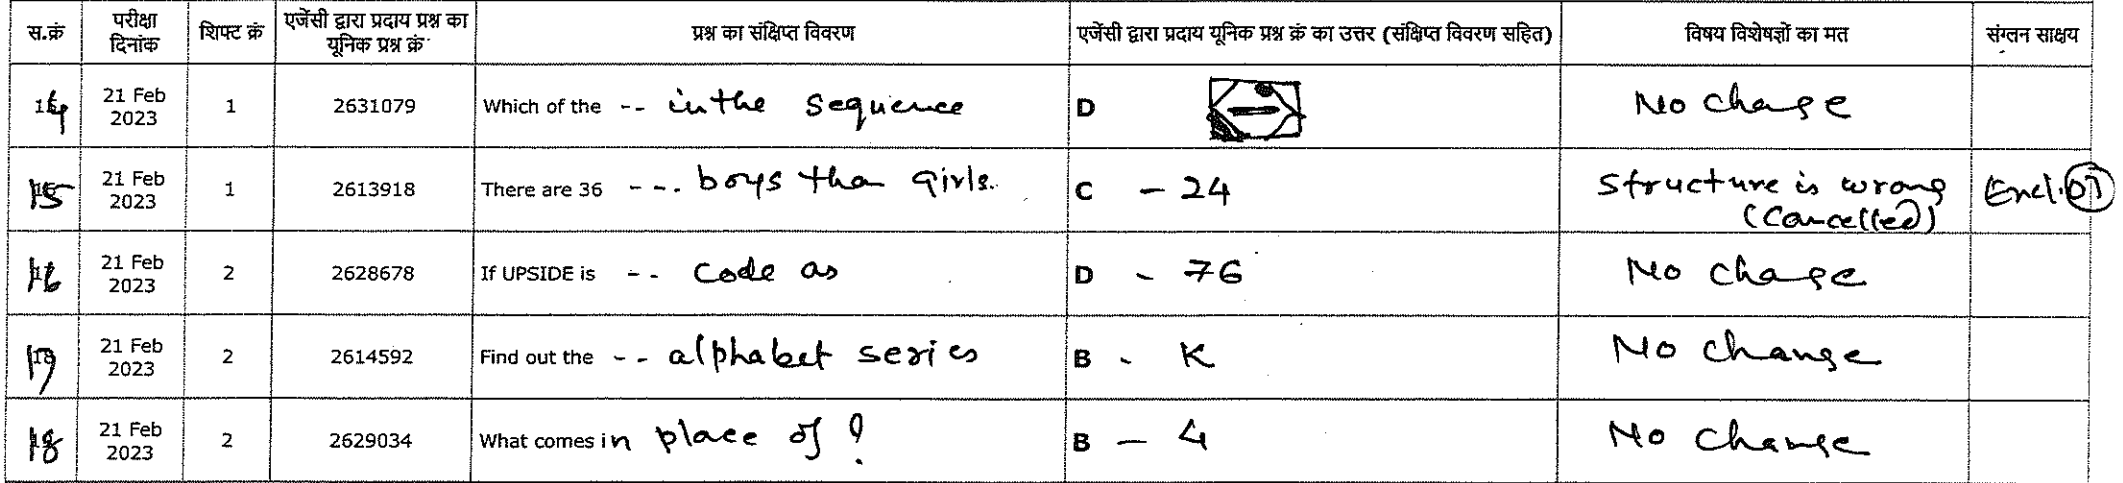 स.क्रं परीक्षा दिनांक शिफ्ट क्रं एजेंसी द्वारा प्रदाय प्रश्न का यूनिक प्रश्न क्रं प्रश्न का संक्षिप्त विवरण एजेंसी द्वारा प्रदाय यूनिक प्रश्न क्रं का उत्तर (संक्षिप्त विवरण सहित) विषय विशेषज्ञों का मत संग्लन साक्षय
14 21 Feb 2023 1 2631079 Which of the -- in the sequence D No change
15 21 Feb 2023 1 2613918 There are 36 --- boys than girls. C - 24 Structure is wrong (Cancelled) Encl. 07
16 21 Feb 2023 2 2628678 If UPSIDE is -- code as D - 76 No change
17 21 Feb 2023 2 2614592 Find out the -- alphabet series B - K No change
18 21 Feb 2023 2 2629034 What comes in place of ? B - 4 No change